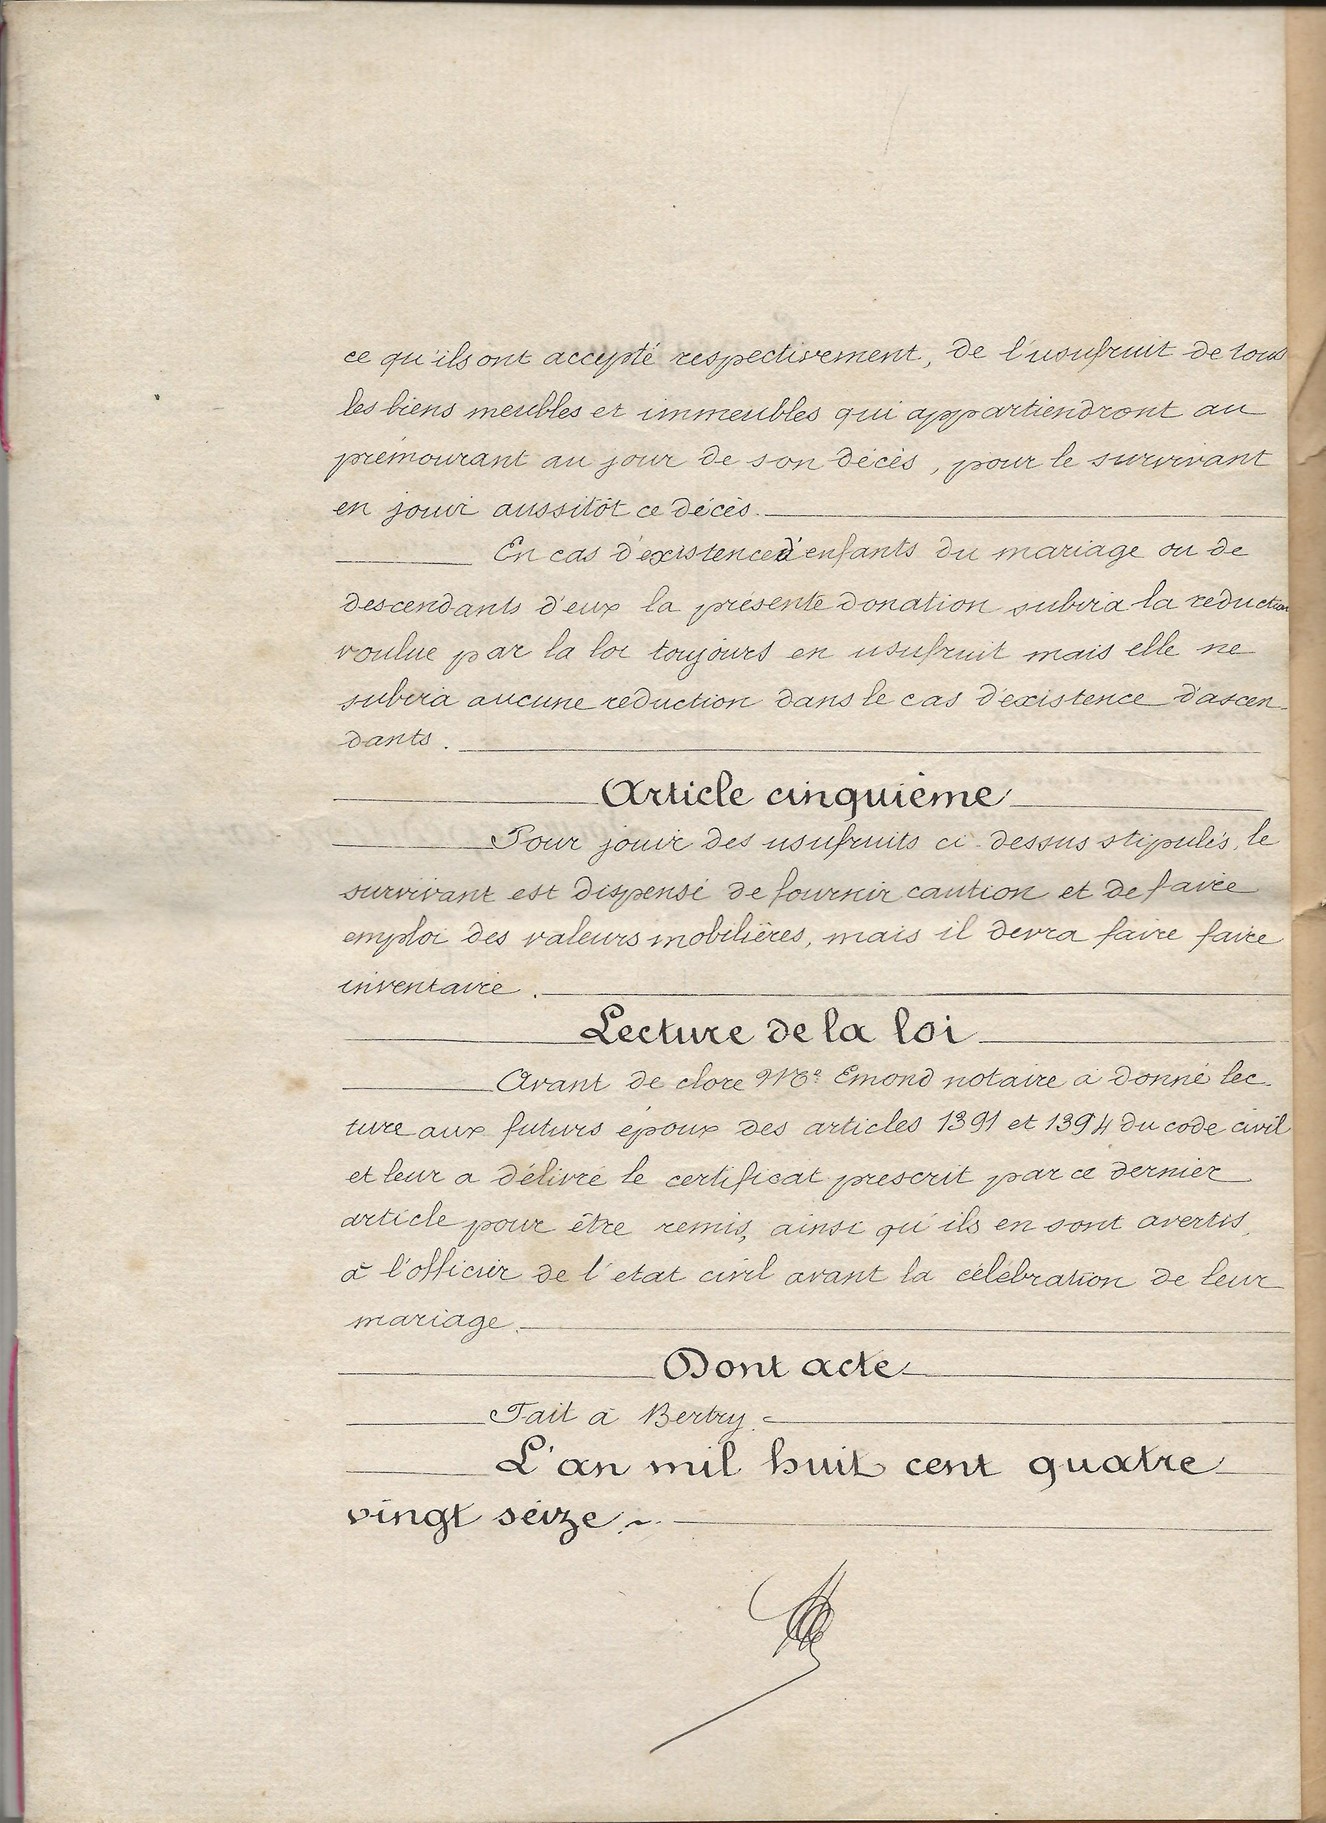 ce qu'ils ont accepté respectivement, de l'usufruit de tous
les biens meubles et immeubles qui appartiendront au
prémourant au jour de son décès, pour le survivant
en jouir aussitôt ce décès.
En cas d'existence d'enfants du mariage ou de
descendants d'eux la présente donation subira la réduction
voulue par la loi toujours en usufruit mais elle ne
subira aucune réduction dans le cas d'existence d'ascen-
dants.
Article cinquième
Pour jouir des usufruits ci-dessus stipulés, le
survivant est dispensé de fournir caution et de faire
emploi des valeurs mobilières, mais il devra faire faire
inventaire.
Lecture de la loi
Avant de clore Me Emond notaire a donné lec-
ture aux futurs époux des articles 1391 et 1394 du code civil
et leur a délivré le certificat prescrit par ce dernier
article pour être remis, ainsi qu'ils en sont avertis,
à l'officier de l'état civil avant la célébration de leur
mariage.
Dont acte
Fait à Bertry.
L'an mil huit cent quatre
vingt seize